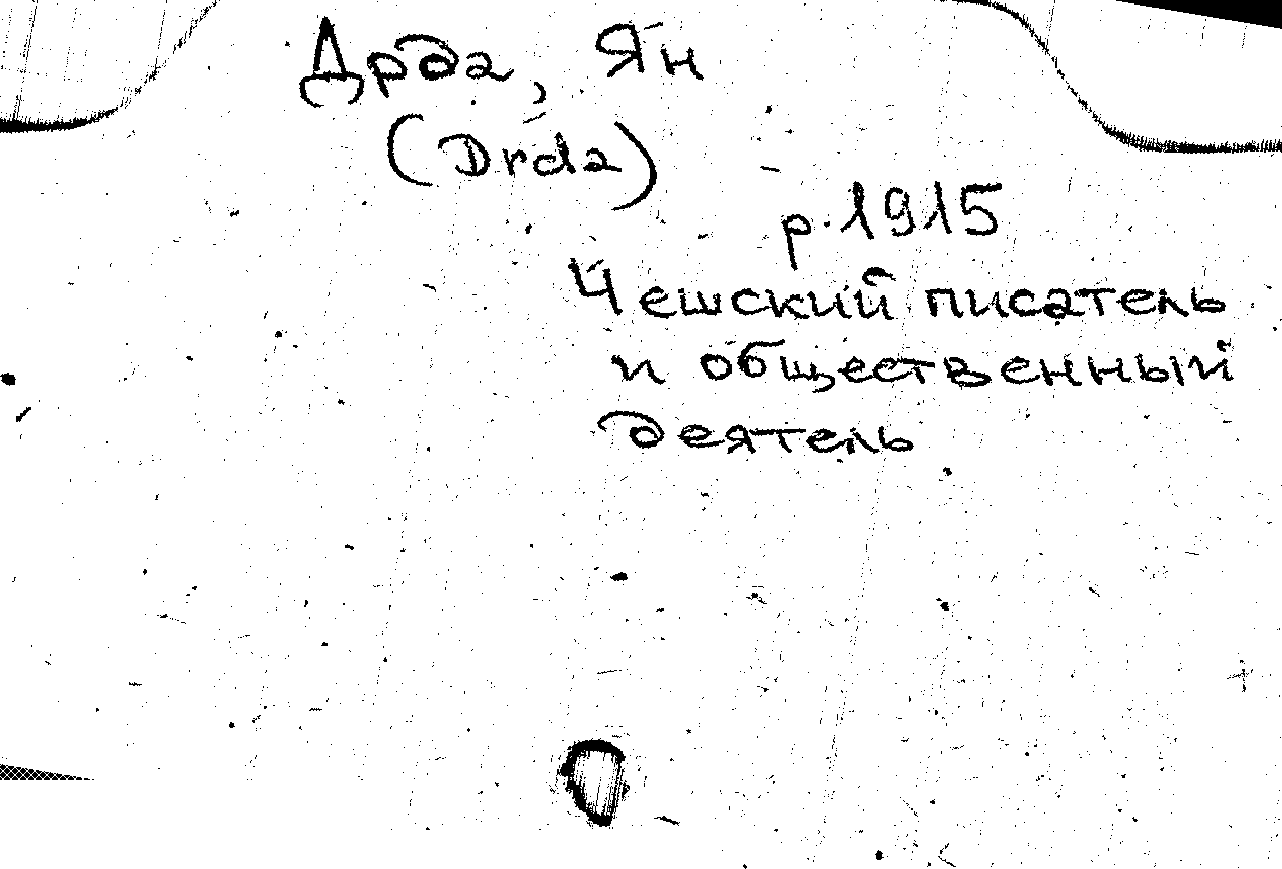 Дрда, Ян
(Drda)
р. 1915
Чешский писатель
и общественный
деятель